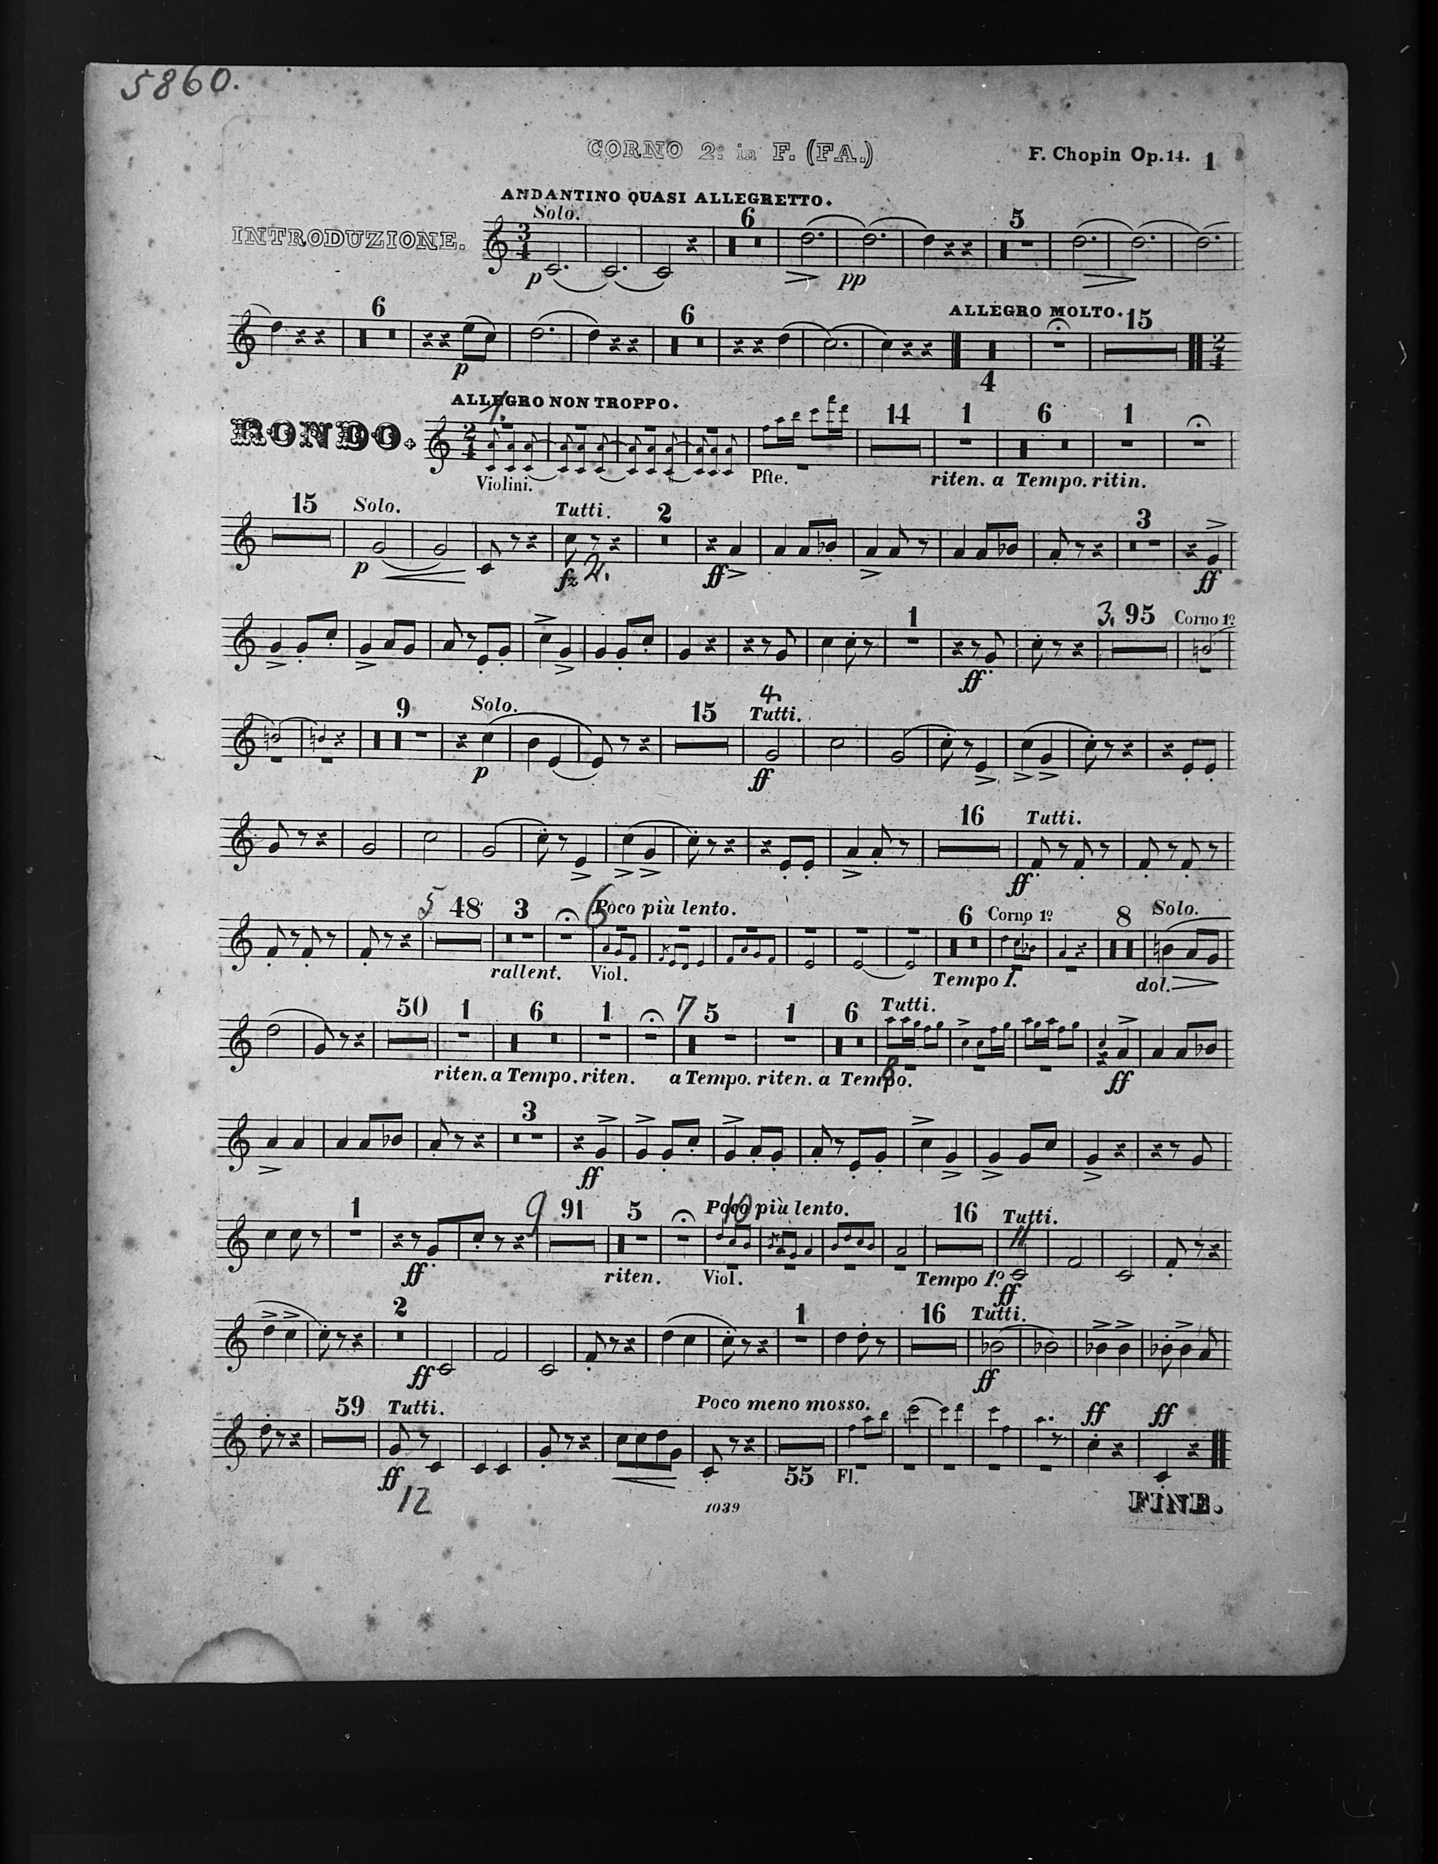 5860.
CORNO 2º in F. (FA.)
F. Chopin Op. 14. 1
ANDANTINO QUASI ALLEGRETTO.
INTRODUZIONE.
Solo. 6 5
p pp
6 6 ALLEGRO MOLTO. 15
p 4
ALLEGRO NON TROPPO.
RONDO. 1. 14 1 6 1
Violini. Pfte. riten. a Tempo. ritin.
15 Solo. Tutti. 2 3
p fz 2. ff ff
1 3. 95 Corno 1º
ff
9 Solo. 15 4. Tutti.
p ff
16 Tutti.
ff
5 48 3 6 Poco più lento. 6 Corno 1º 8 Solo.
rallent. Viol. Tempo 1. dol.
50 1 6 1 7 5 1 6 Tutti.
riten. a Tempo. riten. a Tempo. riten. a Tempo. 8 ff
3
ff
1 9 91 5 Poco più lento. 10 16 Tutti. 11
ff riten. Viol. Tempo 1º ff
2 1 16 Tutti.
ff ff
59 Tutti. Poco meno mosso. ff ff
ff 12 55 Fl.
1039
FINE.